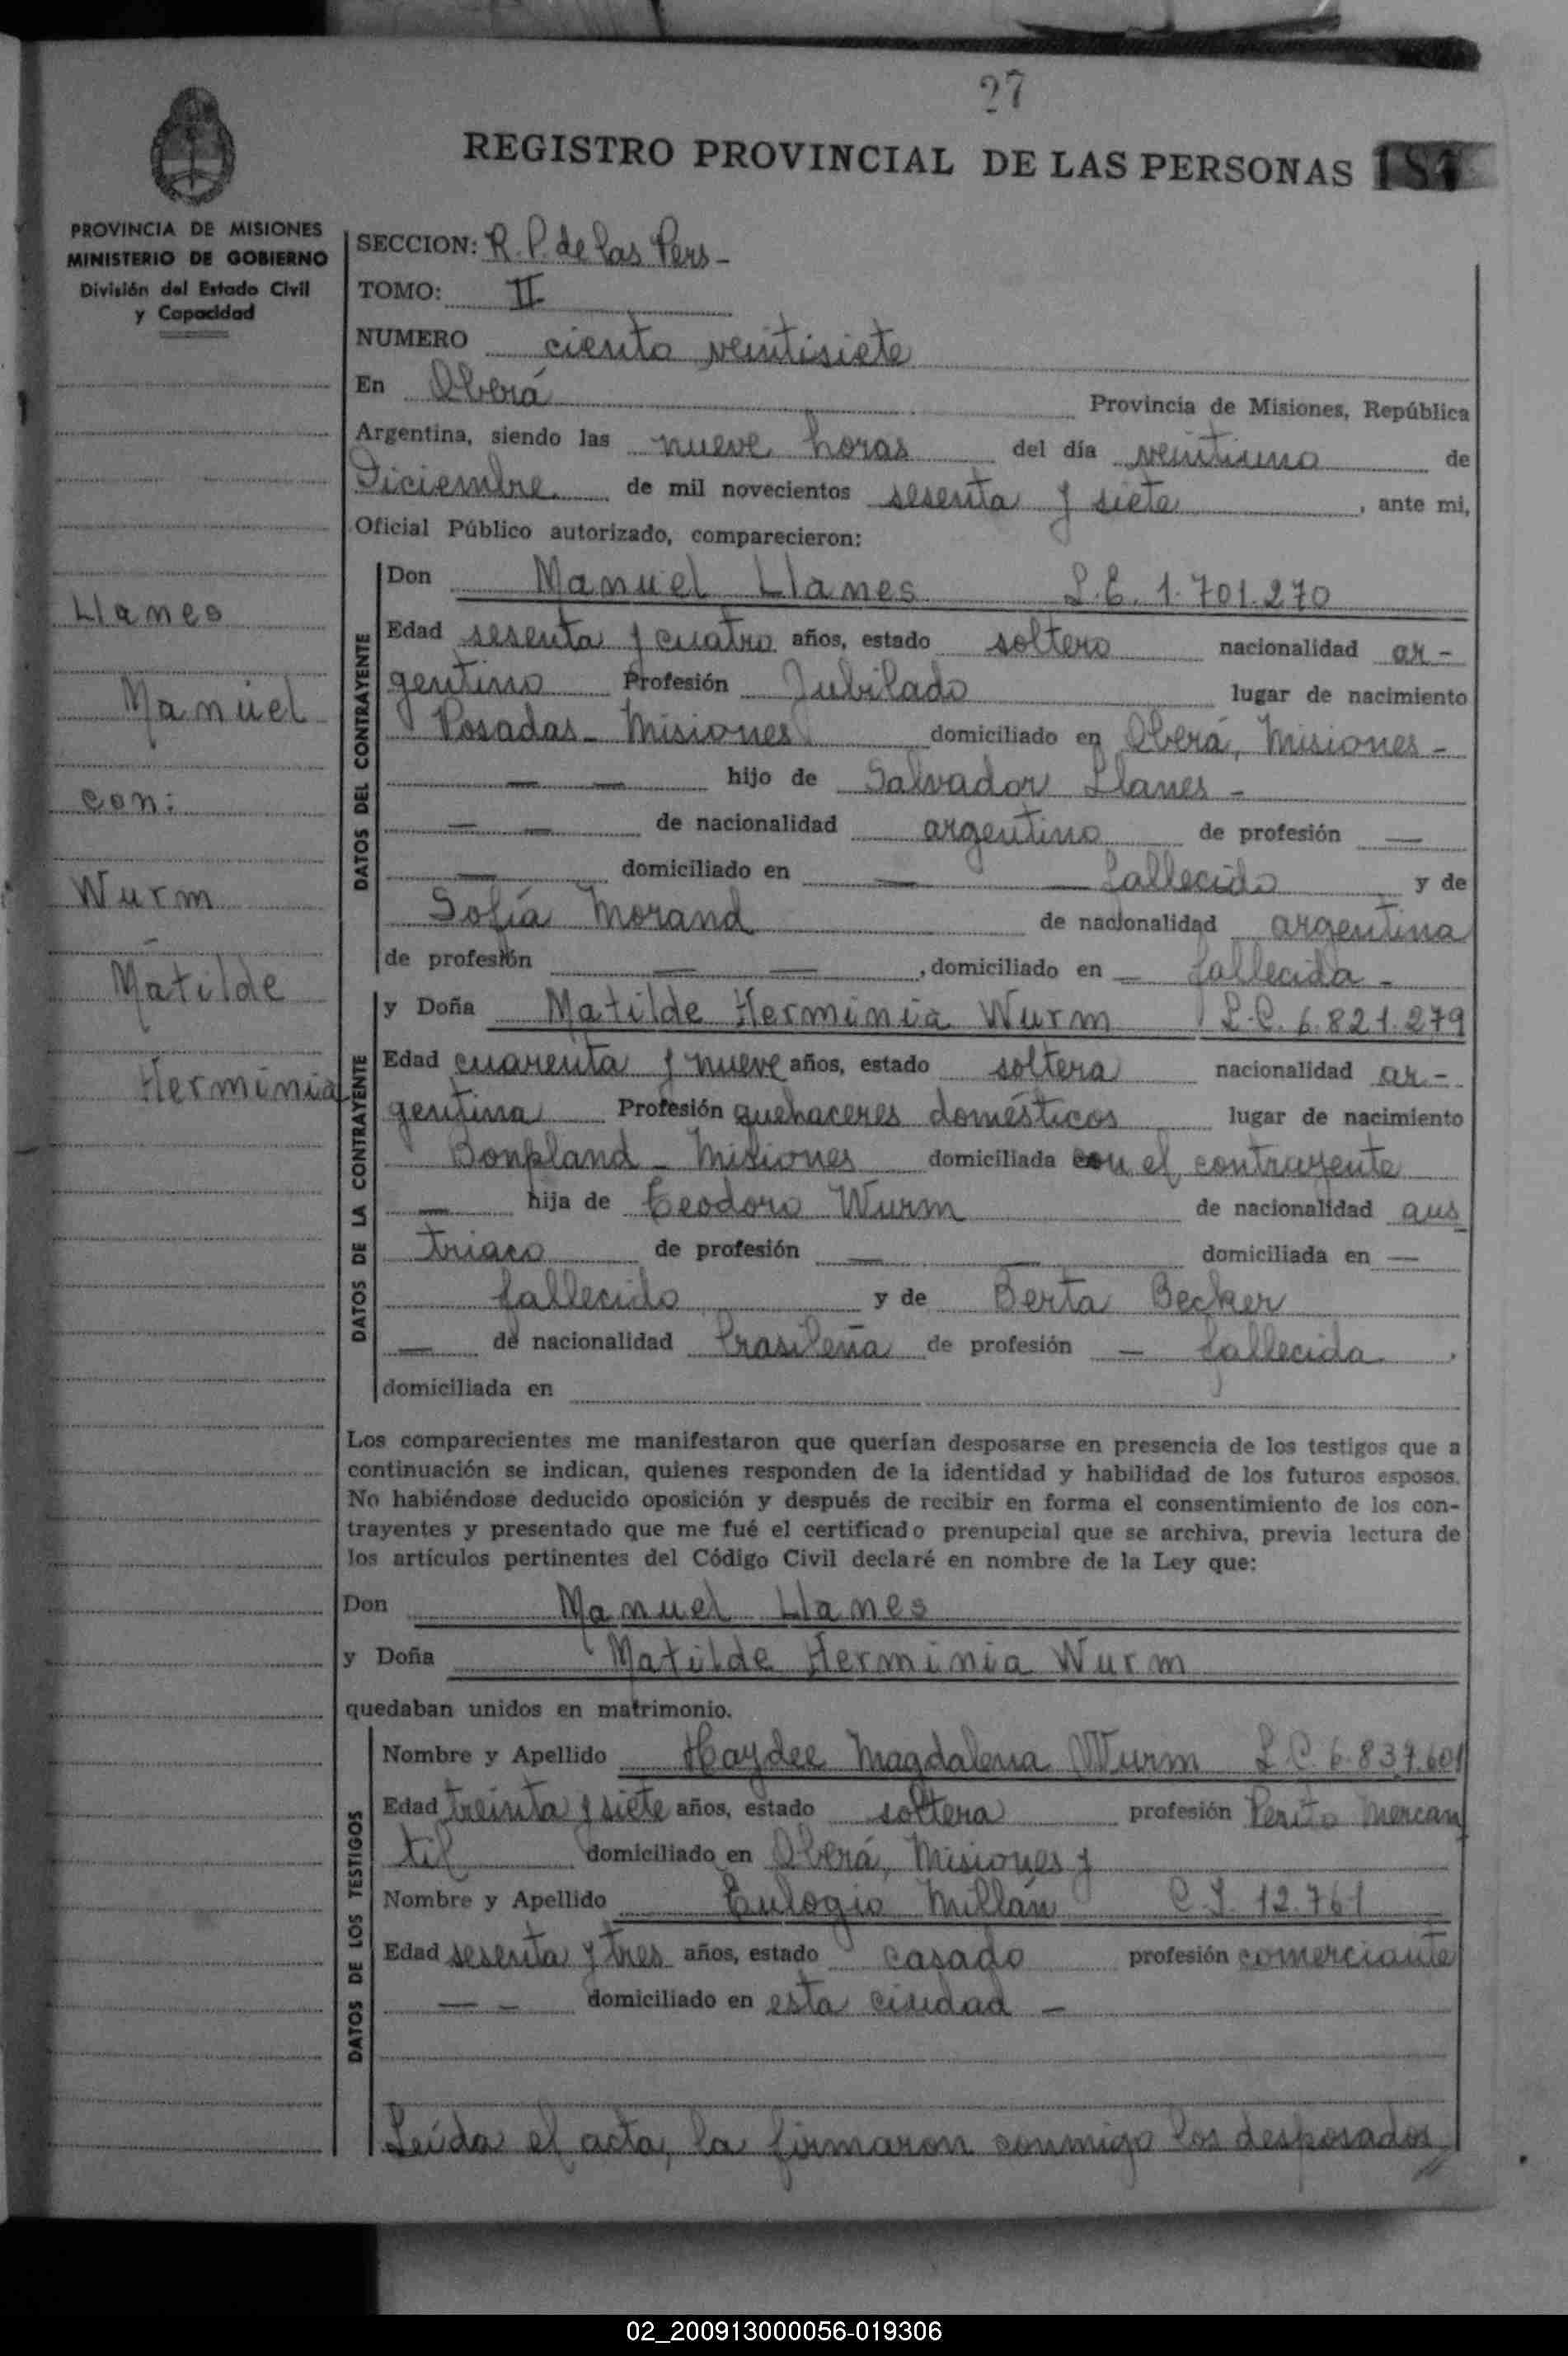 27
REGISTRO PROVINCIAL DE LAS PERSONAS 181
PROVINCIA DE MISIONES
MINISTERIO DE GOBIERNO
División del Estado Civil
y Capacidad
Llanes
Manuel
con:
Wurm
Matilde
Herminia
SECCION: R. P. de las Pers -
TOMO: II
NUMERO ciento veintisiete
En Oberá Provincia de Misiones, República
Argentina, siendo las nueve horas del día veintiuno de
Diciembre de mil novecientos sesenta y siete , ante mi,
Oficial Público autorizado, comparecieron:
DATOS DEL CONTRAYENTE
Don Manuel Llanes L.E. 1.701.270
Edad sesenta y cuatro años, estado soltero nacionalidad ar -
gentino Profesión Jubilado lugar de nacimiento
Posadas - Misiones domiciliado en Oberá, Misiones -
— — hijo de Salvador Llanes -
— — de nacionalidad argentino de profesión —
— domiciliado en — — fallecido y de
Sofía Morand de nacionalidad argentina
de profesión — — , domiciliado en — fallecida -
DATOS DE LA CONTRAYENTE
y Doña Matilde Herminia Wurm L.C. 6.821.279
Edad cuarenta y nueve años, estado soltera nacionalidad ar -
gentina Profesión quehaceres domésticos lugar de nacimiento
Bonpland - Misiones domiciliada con el contrayente
— hija de Teodoro Wurm de nacionalidad aus
triaco de profesión — — domiciliada en —
fallecido y de Berta Becker
— de nacionalidad brasileña de profesión — fallecida .
domiciliada en
Los comparecientes me manifestaron que querían desposarse en presencia de los testigos que a
continuación se indican, quienes responden de la identidad y habilidad de los futuros esposos.
No habiéndose deducido oposición y después de recibir en forma el consentimiento de los con-
trayentes y presentado que me fué el certificado prenupcial que se archiva, previa lectura de
los artículos pertinentes del Código Civil declaré en nombre de la Ley que:
Don Manuel Llanes
y Doña Matilde Herminia Wurm
quedaban unidos en matrimonio.
DATOS DE LOS TESTIGOS
Nombre y Apellido Haydee Magdalena Wurm L.C. 6.837.601
Edad treinta y siete años, estado soltera profesión Perito Mercan
til domiciliado en Oberá, Misiones y
Nombre y Apellido Eulogio Millán C.I. 12.761
Edad sesenta y tres años, estado casado profesión comerciante
— - domiciliado en esta ciudad -
Leída el acta, la firmaron conmigo los desposados
02_200913000056-019306